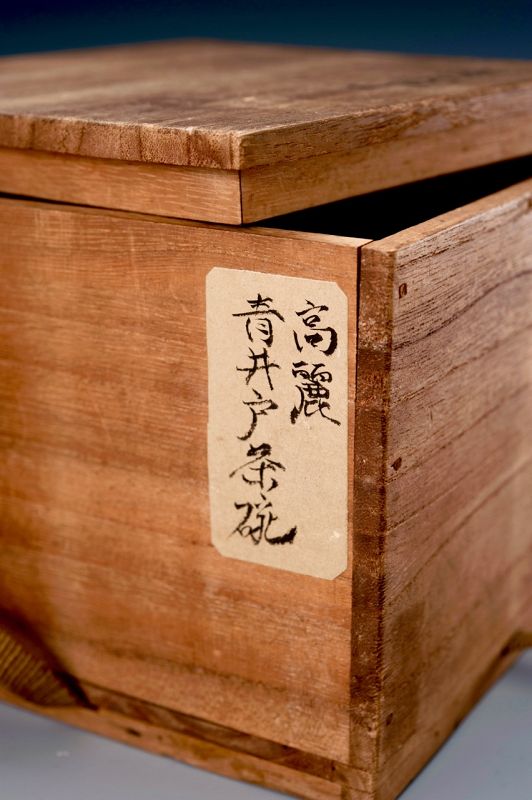 高麗
青井戸茶碗